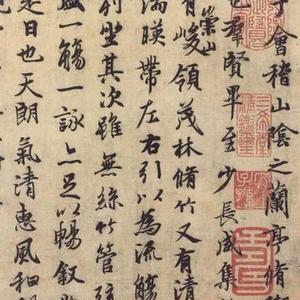 會稽山陰之蘭亭脩
也群賢畢至少長咸集
崇山
有峻領茂林脩竹又有清
湍暎帶左右引以為流觴
列坐其次雖無絲竹管弦
盛一觴一詠亦足以暢敘
是日也天朗氣清惠風和